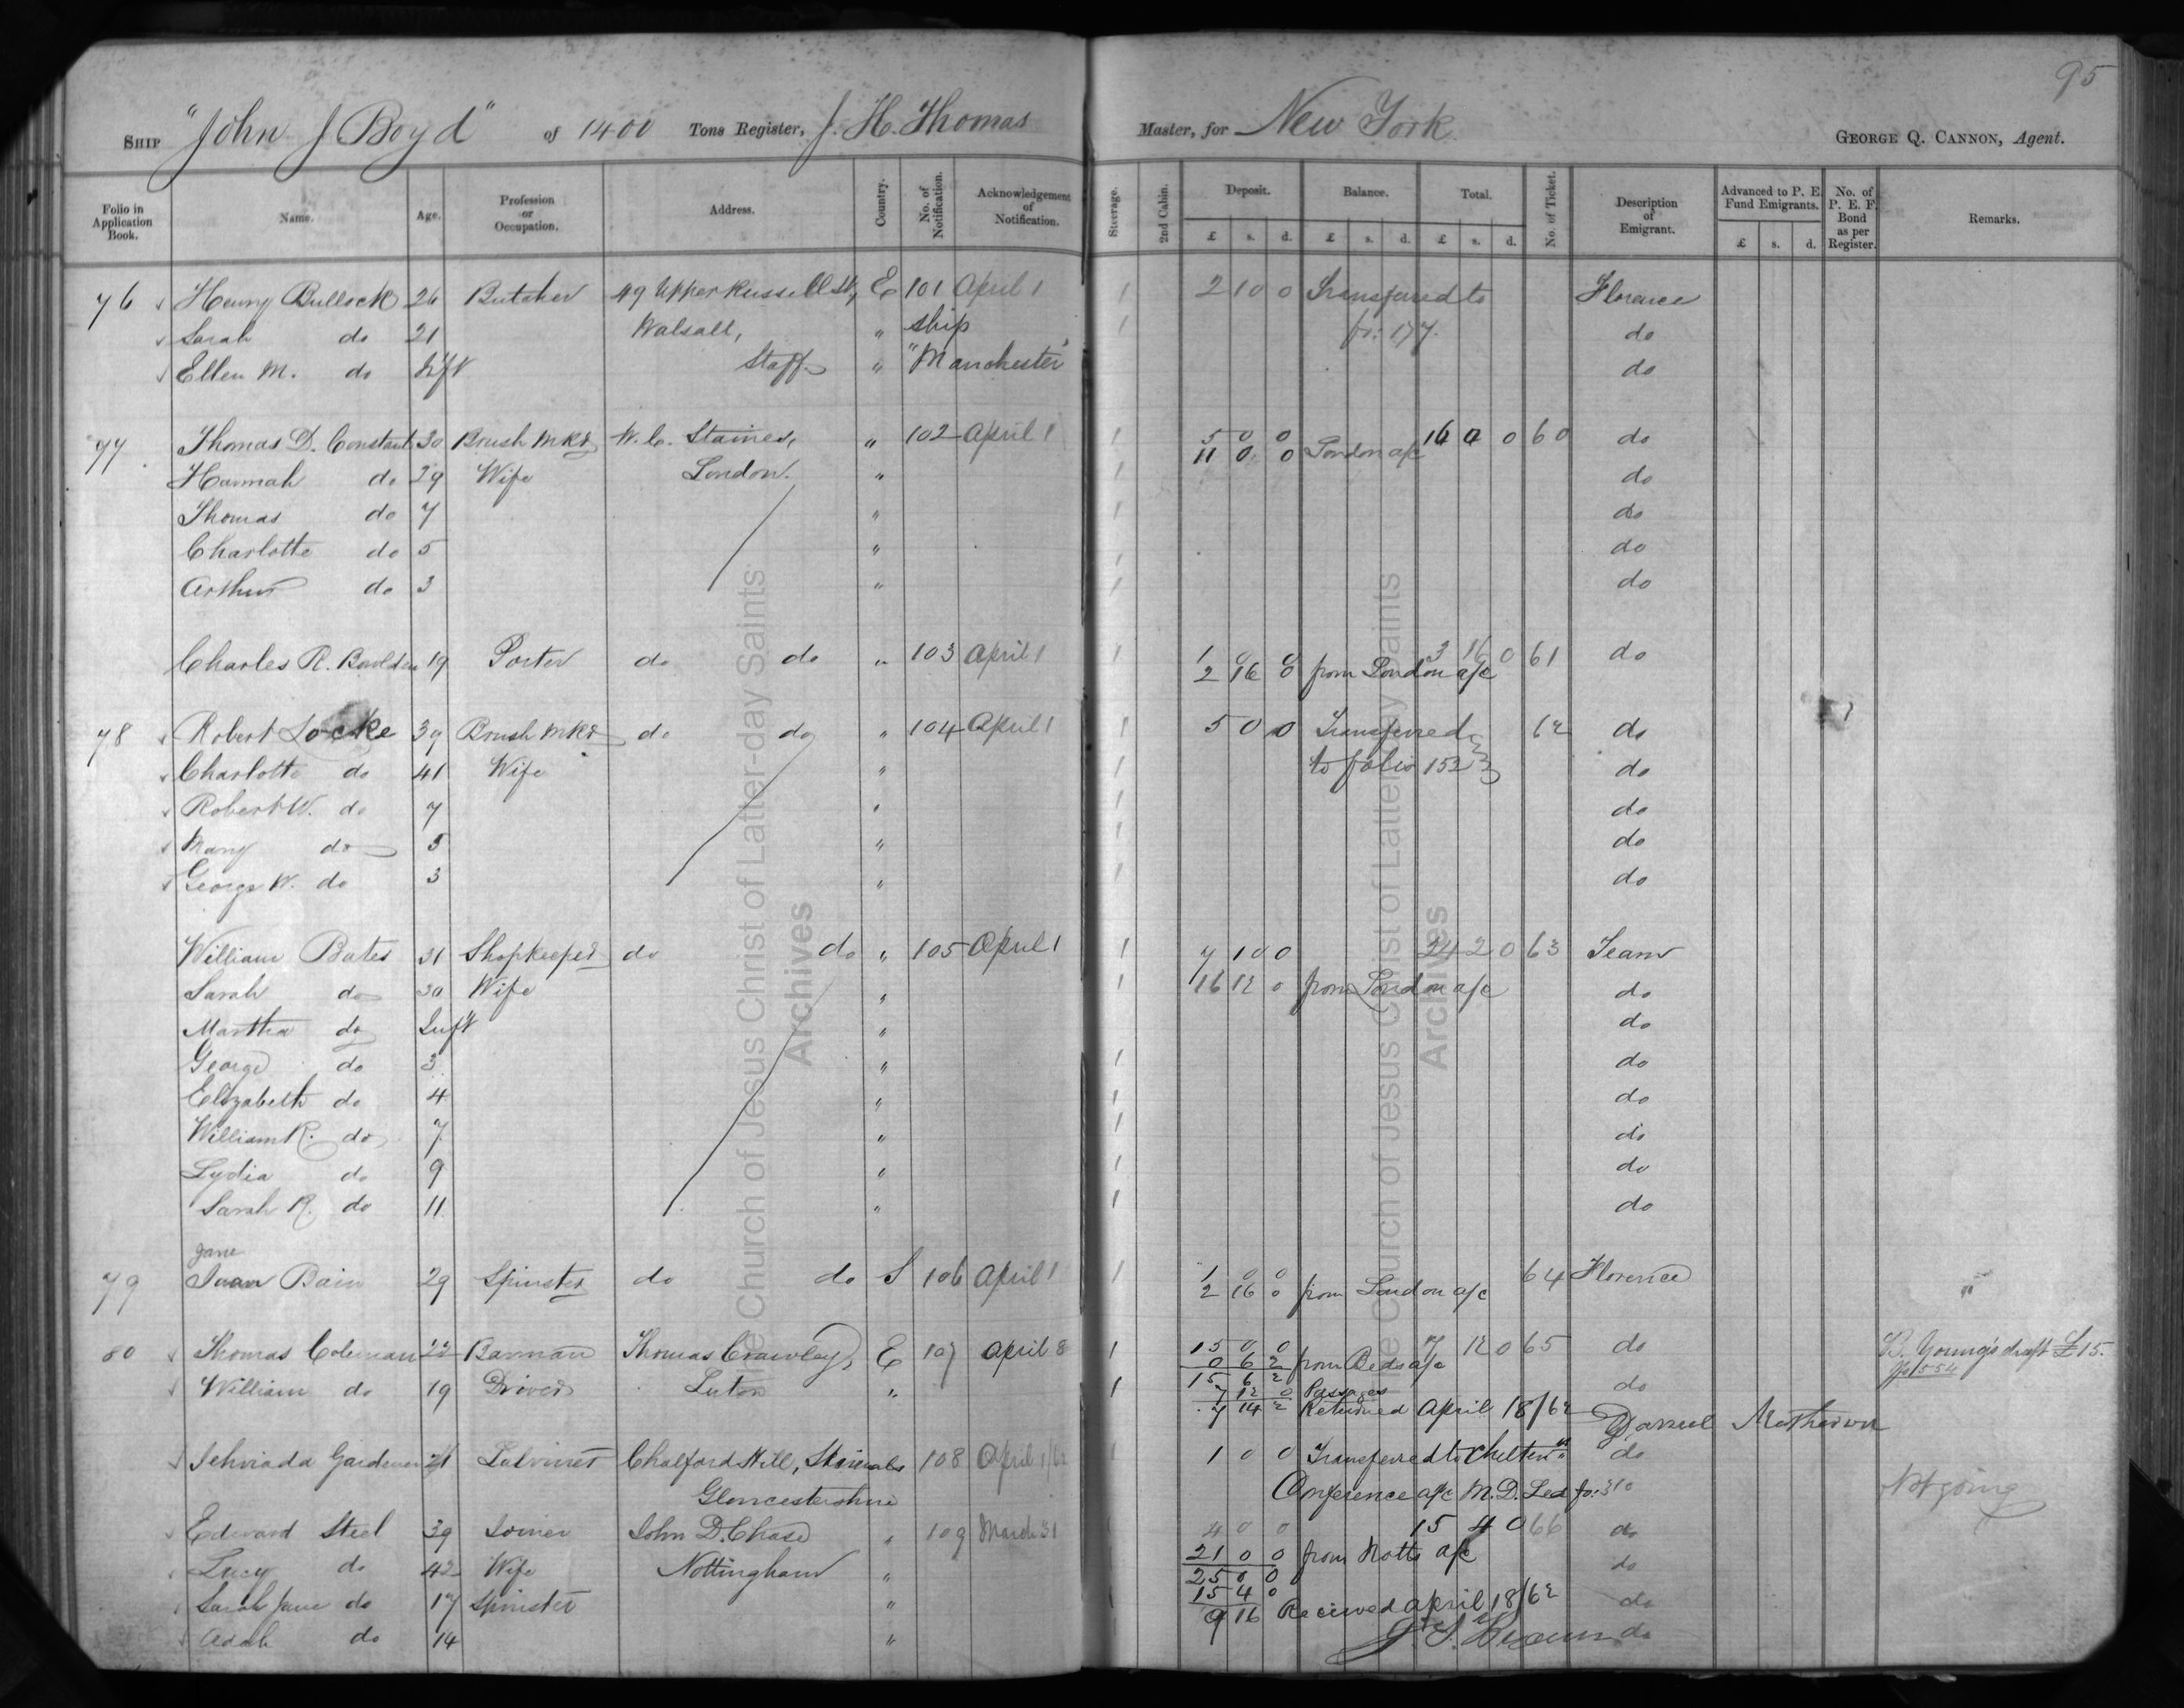 95
SHIP "John J Boyd" of 1400 Tons Register, J. H. Thomas Master, for New York GEORGE Q. CANNON, Agent.
Folio in Application Book. Name. Age. Profession or Occupation. Address. Country. No. of Notification. Acknowledgement of Notification. Steerage. 2nd Cabin. Deposit. Balance. Total. No. of Ticket. Description of Emigrant. Advanced to P. E. Fund Emigrants. No. of P. E. F. Bond as per Register. Remarks.
£ s. d. £ s. d. £ s. d. £ s. d.
76 Henry Bullock 26 Butcher 49 Upper Russell St, E 101 April 1 1 2 10 0 Transferred to Florence
Sarah do 21 Walsall, " ship 1 fo: 177. do
Ellen M. do Inft Staff " "Manchester" do
77 Thomas D. Constant 30 Brush Mkr W. C. Staines, " 102 April 1 1 5 0 0 16 0 0 60 do
11 0 0 London a/c
Hannah do 29 Wife London. " 1 do
Thomas do 7 " 1 do
Charlotte do 5 " 1 do
Arthur do 3 " 1 do
Charles R. 19 Porter do do " 103 April 1 1 1 0 0 3 16 0 61 do
2 16 0 from London a/c
78 Robert Locke 39 Brush Mkr do do " 104 April 1 1 5 0 0 Transferred 62 do
Charlotte do 41 Wife " 1 to folio 152 do
Robert W. do 7 " 1 do
Mary do 5 " 1 do
George W. do 3 " 1 do
William Bates 31 Shopkeeper do do " 105 April 1 1 7 10 0 24 2 0 63 Team
Sarah do 30 Wife " 1 16 12 0 from London a/c do
Martha do Inft " do
George do 3 " 1 do
Elizabeth do 4 " 1 do
William R. do 7 " 1 do
Lydia do 9 " 1 do
Sarah R. do 11 " 1 do
Jane
79 Bain 29 Spinster do do S 106 April 1 1 1 0 0 64 Florence
2 16 0 from London a/c
80 Thomas Coleman 22 Barman Thomas Crawley, E 107 April 8 1 15 0 0 7 12 0 65 do B. Young's draft £15.
0 6 2 from Beds a/c
15 6 2
William do 19 Drover Luton " 1 7 12 0 Passages do
7 14 2 Returned April 18/62 Daniel
Gardener 21 Chalford Hill, 108 April 1/62 1 1 0 0 Transferred to Cheltenm do
Gloucestershire Conference a/c M.D. Led fo: 310 Not going
Edward Steel 39 Joiner John D. Chase " 109 March 31 4 0 0 15 4 0 66 do
21 0 0 from Notts a/c
Lucy do 42 Wife Nottingham " 25 0 0 do
15 4 0
Sarah Jane do 17 Spinster " 9 16 Received April 18/62 do
Adah do 14 " do
The Church of Jesus Christ of Latter-day Saints
Archives
The Church of Jesus Christ of Latter-day Saints
Archives